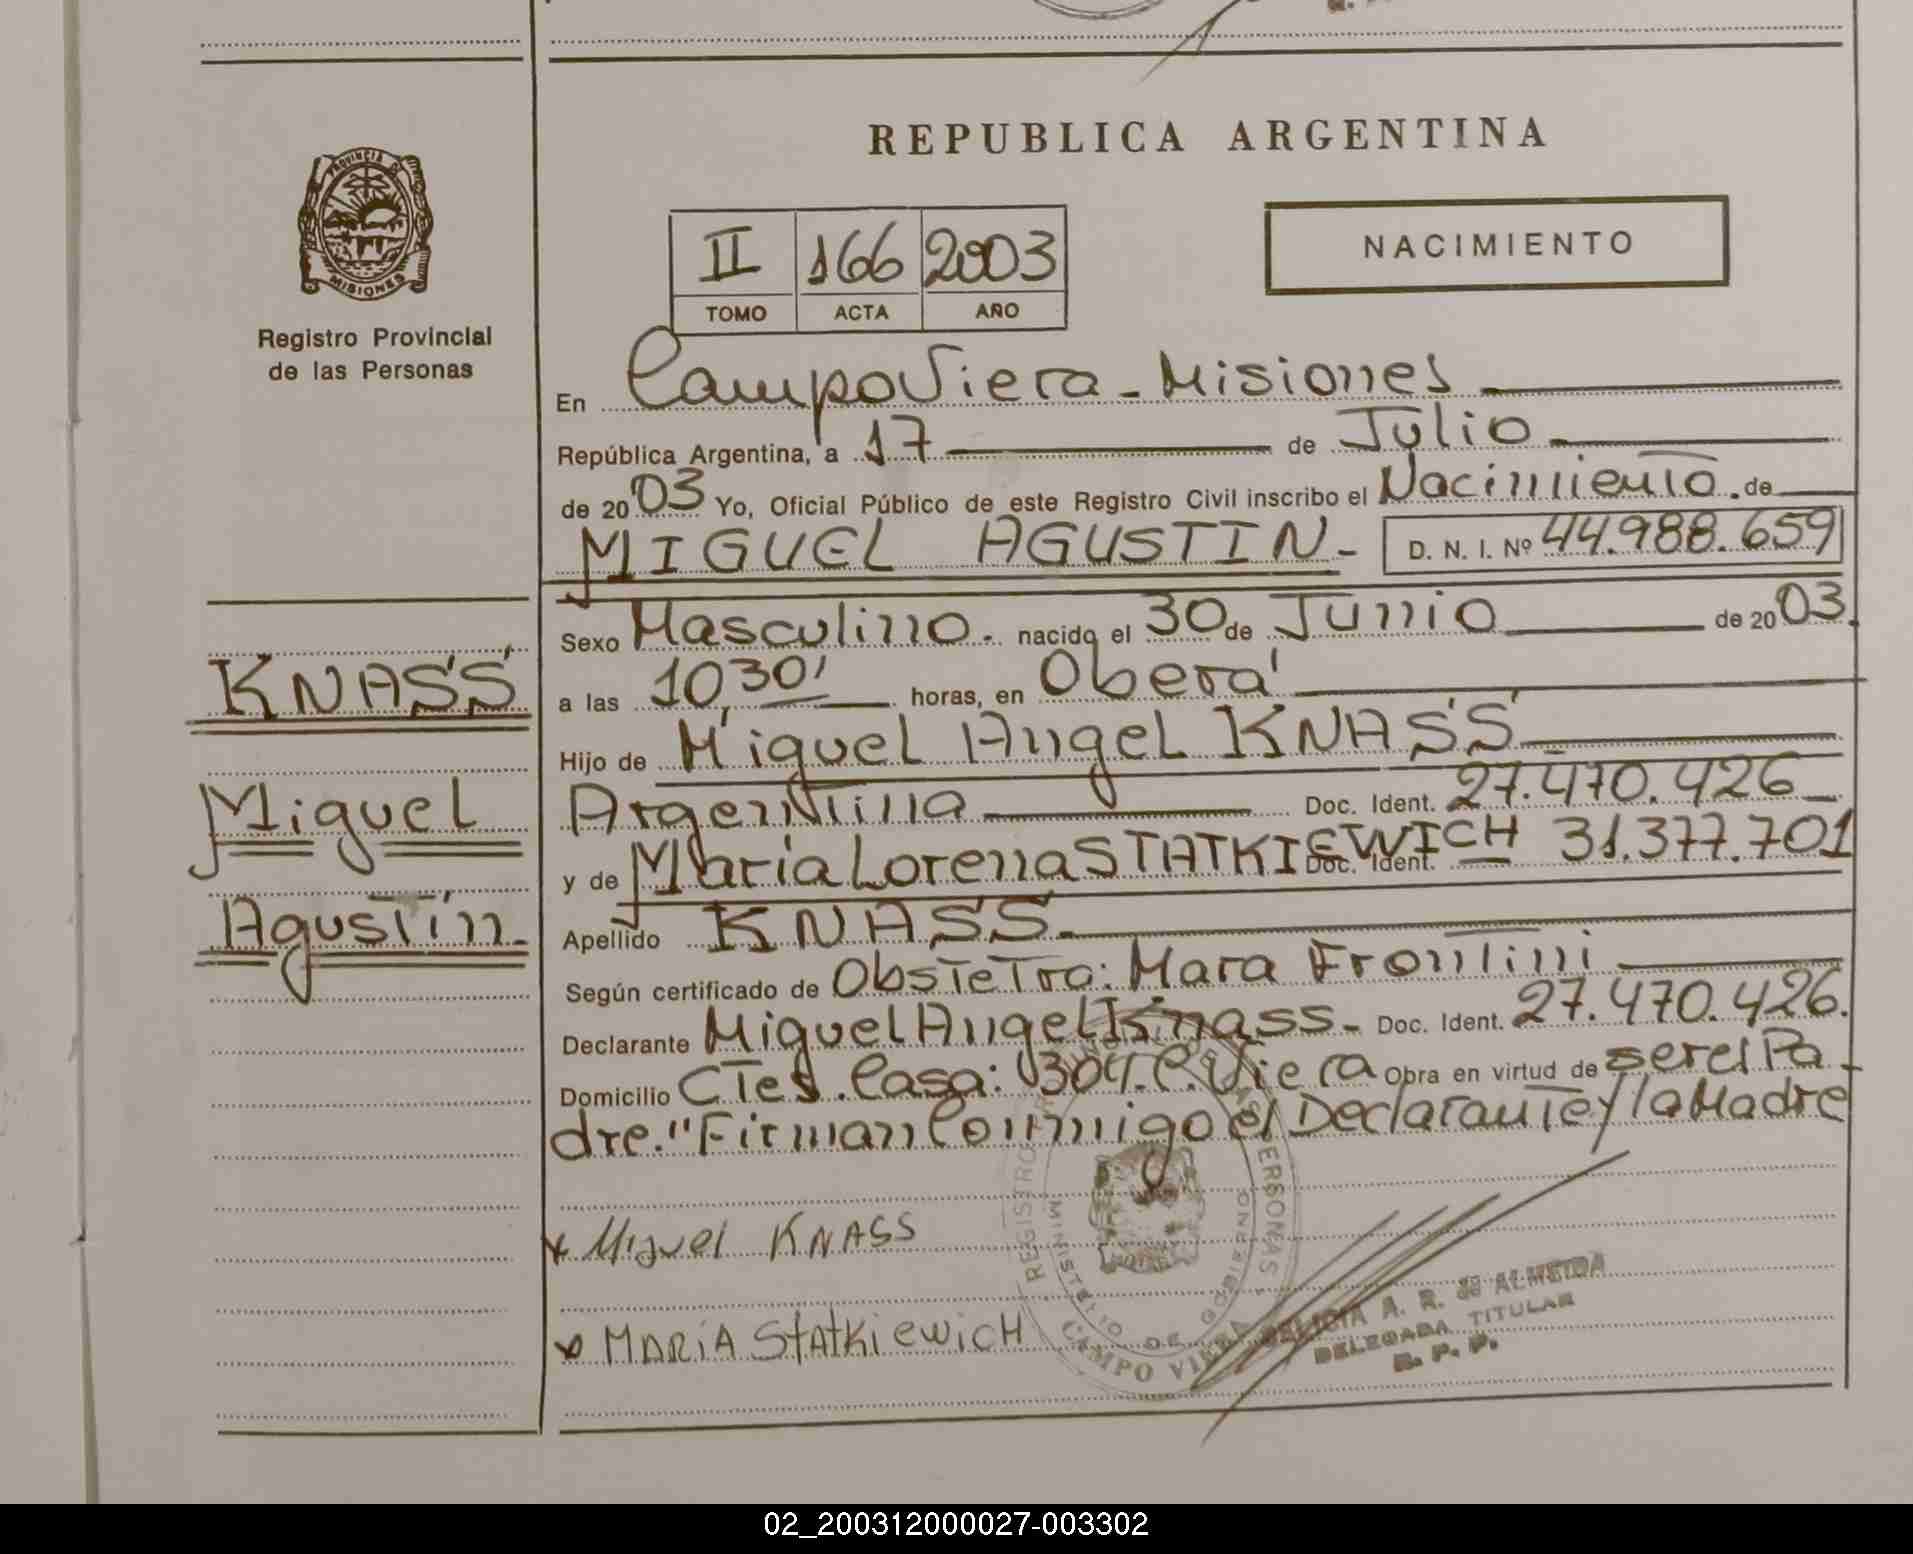 REPUBLICA ARGENTINA
PROVINCIA DE
MISIONES
Registro Provincial
de las Personas
II 166 2003
TOMO ACTA AÑO
NACIMIENTO
En Campo Viera - Misiones
República Argentina, a 17 de Julio
de 2003 Yo, Oficial Público de este Registro Civil inscribo el Nacimiento. de
MIGUEL AGUSTIN - D. N. I. Nº 44.988.659
Sexo Masculino. nacido el 30 de Junio de 2003.
a las 10,30' horas, en Oberá
Hijo de Miguel Angel KNASS
Argentina Doc. Ident. 27.470.426
y de Maria Lorena STATKIEWICH Doc. Ident. 31.377.701
Apellido KNASS.
Según certificado de Obstetra: Mara Frontini
Declarante Miguel Angel Knass. Doc. Ident. 27.470.426.
Domicilio CTes. Casa: 304. C. Viera Obra en virtud de ser el Pa
dre." Firman Conmigo el Declarante y la Madre
KNASS
Miguel
Agustín
x Miguel KNASS
x MARIA STATKIEWICH
REGISTRO PERSONAS
MINISTERIO DE GOBIERNO
CAMPO VIERA
A. R. de ALMEIDA
DELEGADA TITULAR
R. P. P.
02_200312000027-003302